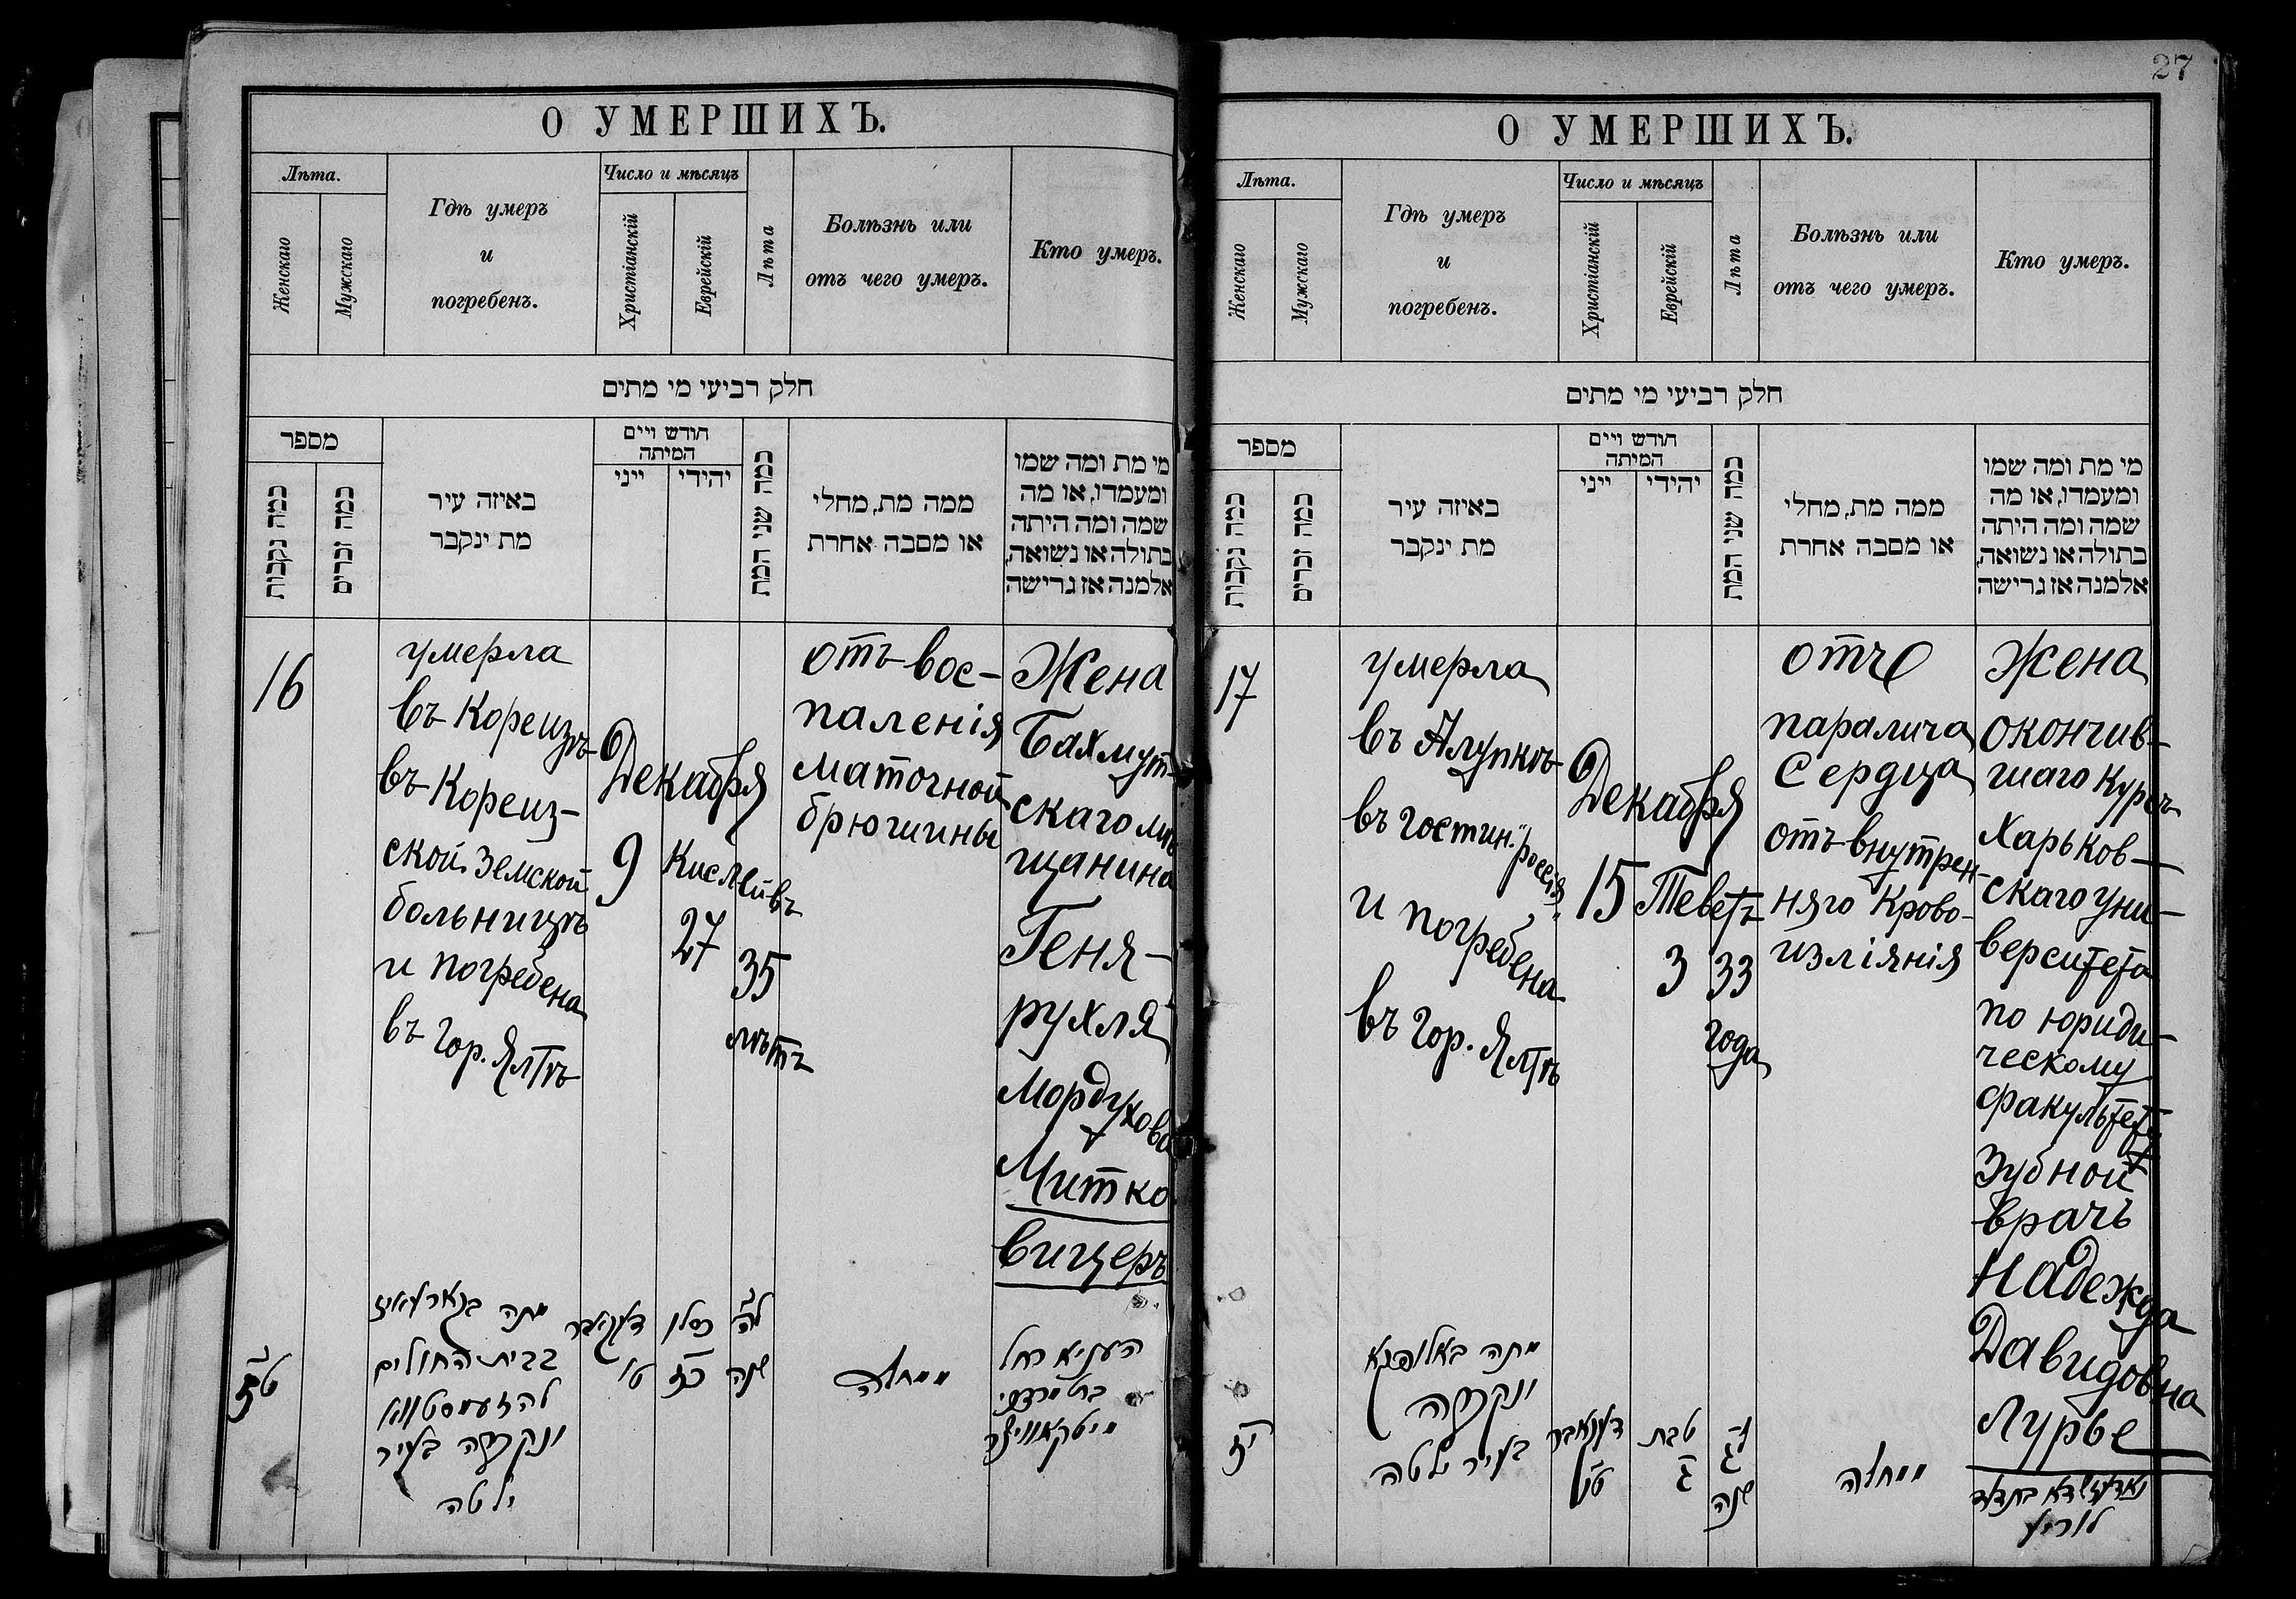 О УМЕРШИХЪ.
Лѣта.
Женскаго
Мужскаго
Гдѣ умеръ
и
погребенъ.
Число и мѣсяцъ
Христіанскій
Еврейскій
Лѣта
Болѣзнь или
отъ чего умеръ.
Кто умеръ.
חלק רביעי מי מתים
מספר
כמה נקבות
כמה זכרים
באיזה עיר
מת ינקבר
חודש ויים
המיתה
ייני
יהידי
כמה שני המת
ממה מת, מחלי
או מסבה אחרת
מי מת ומה שמו
ומעמדו, או מה
שמה ומה היתה
בתולה או נשואה,
אלמנה אז גרישה
16
умерла
въ Кореизѣ
въ Кореиз-
ской Земской
больницѣ
и погребена
въ гор. Ялтѣ
Декабря
9
Кислейвъ
27
35
лѣтъ
отъ вос-
паленія
маточной
брюшины
Жена
Бахмут-
скаго мѣ
щанина
Геня-
рухля
Мордухова
Митко
вицеръ
טז
מתה בקארעאיז
בבית החולים
להזעמסטווא
ונקברה בעיר
ילטה
דעקאבר
טו
כסלו
כז
לה
שנה
ממחלה
העניא רחל
מיטקאוויצר
27
О УМЕРШИХЪ.
Лѣта.
Женскаго
Мужскаго
Гдѣ умеръ
и
погребенъ.
Число и мѣсяцъ
Христіанскій
Еврейскій
Лѣта
Болѣзнь или
отъ чего умеръ.
Кто умеръ.
חלק רביעי מי מתים
מספר
כמה נקבות
כמה זכרים
באיזה עיר
מת ינקבר
חודש ויים
המיתה
ייני
יהידי
כמה שני המת
ממה מת, מחלי
או מסבה אחרת
מי מת ומה שמו
ומעמדו, או מה
שמה ומה היתה
בתולה או נשואה,
אלמנה אז גרישה
17
умерла
въ Алупкѣ
въ гостин. „Россія“
и погребена
въ гор. Ялтѣ
Декабря
15
Теветъ
3
33
года
отъ
паралича
Сердца
отъ внутрен-
няго Крово-
изліянія
Жена
окончив-
шаго курсъ
Харьков-
скаго уни-
верситета
по юриди-
ческому
факультету
Зубной
врачъ
Надежда
Давидовна
Лурье
יז
מתה באלופקא
ונקברה
בעיר ילטה
דעקאבר
טבת
ג
שנה
ממחלה
לוריע